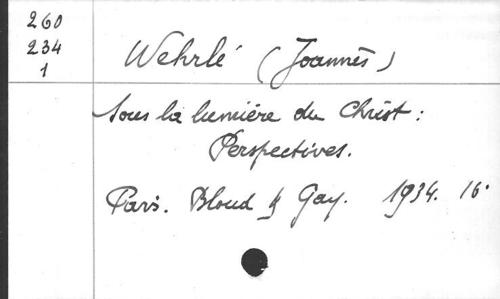 260
234
1
Wehrlé (Joannès)
Sous la lumière du Christ :
Perspectives.
Paris. Bloud & Gay. 1934. 16°